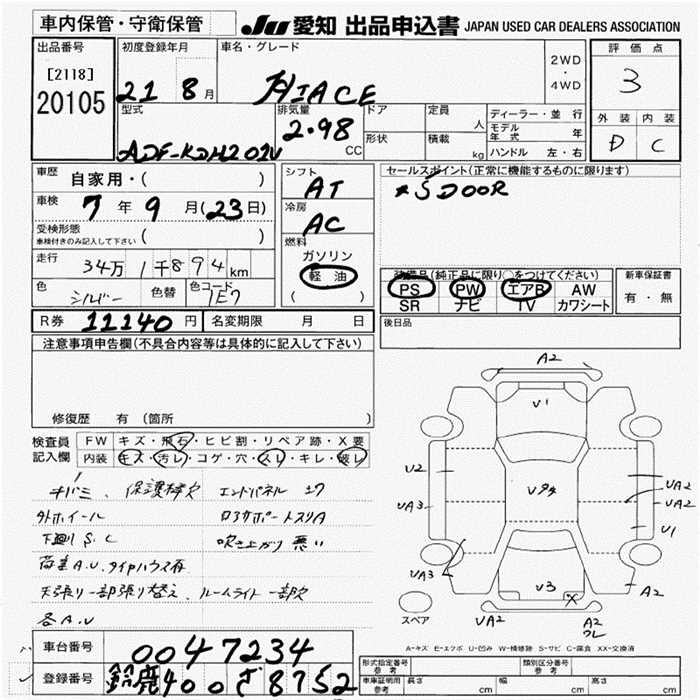 車内保管・守衛保管
JU 愛知 出品申込書 JAPAN USED CAR DEALERS ASSOCIATION
出品番号
[2118]
20105
初度登録年月
21 8月
車名・グレード
HIACE
2WD
・
4WD
評価点
3
外装 内装
D C
型式
ADF-KDH201V
排気量
2.98 CC
ドア
形状
定員 人
積載 kg
ディーラー・並行
モデル年式 年
ハンドル 左・右
車歴 自家用・( )
車検 7年9月(23日)
受検形態
車検付きのみ記入して下さい ( )
走行 34万1千894km
色 シルバー 色替 色コード 1E7
シフト
AT
冷房
AC
燃料
ガソリン
軽油
( )
セールスポイント(正常に機能するものに限ります)
*5DOOR
装備品(純正品に限り○をつけてください)
PS PW エアB AW
SR ナビ TV カワシート
新車保証書
有・無
R券 11140円 名変期限 月 日
後日品
注意事項申告欄(不具合内容等は具体的に記入して下さい)
修復歴 有 (箇所 )
検査員記入欄
FW キズ・飛石・ヒビ割・リペア跡・X要
内装 キズ・汚レ・コゲ・穴・スレ・キレ・破レ
キバミ、保護棒欠 エンドパネル
外ホイール
下廻りS.C 吹き上がり悪い
荷室A.U.タイヤハウス有
天張り一部張り替え、ルームライト一部欠
各A.U
A2
V1
U2
UA3
U94
UA2
UA2
U1
UA3
V3
X
A2
スペア
UA2
A2
ワレ
A-キズ E-エクボ U-凹み W-補修跡 S-サビ C-腐食 XX-交換済
車台番号 0047234
登録番号 鈴鹿400ざ8752
形式指定番号 参考
類別区分番号 参考
車庫証明用 参考 長さ cm 幅 cm 高さ cm